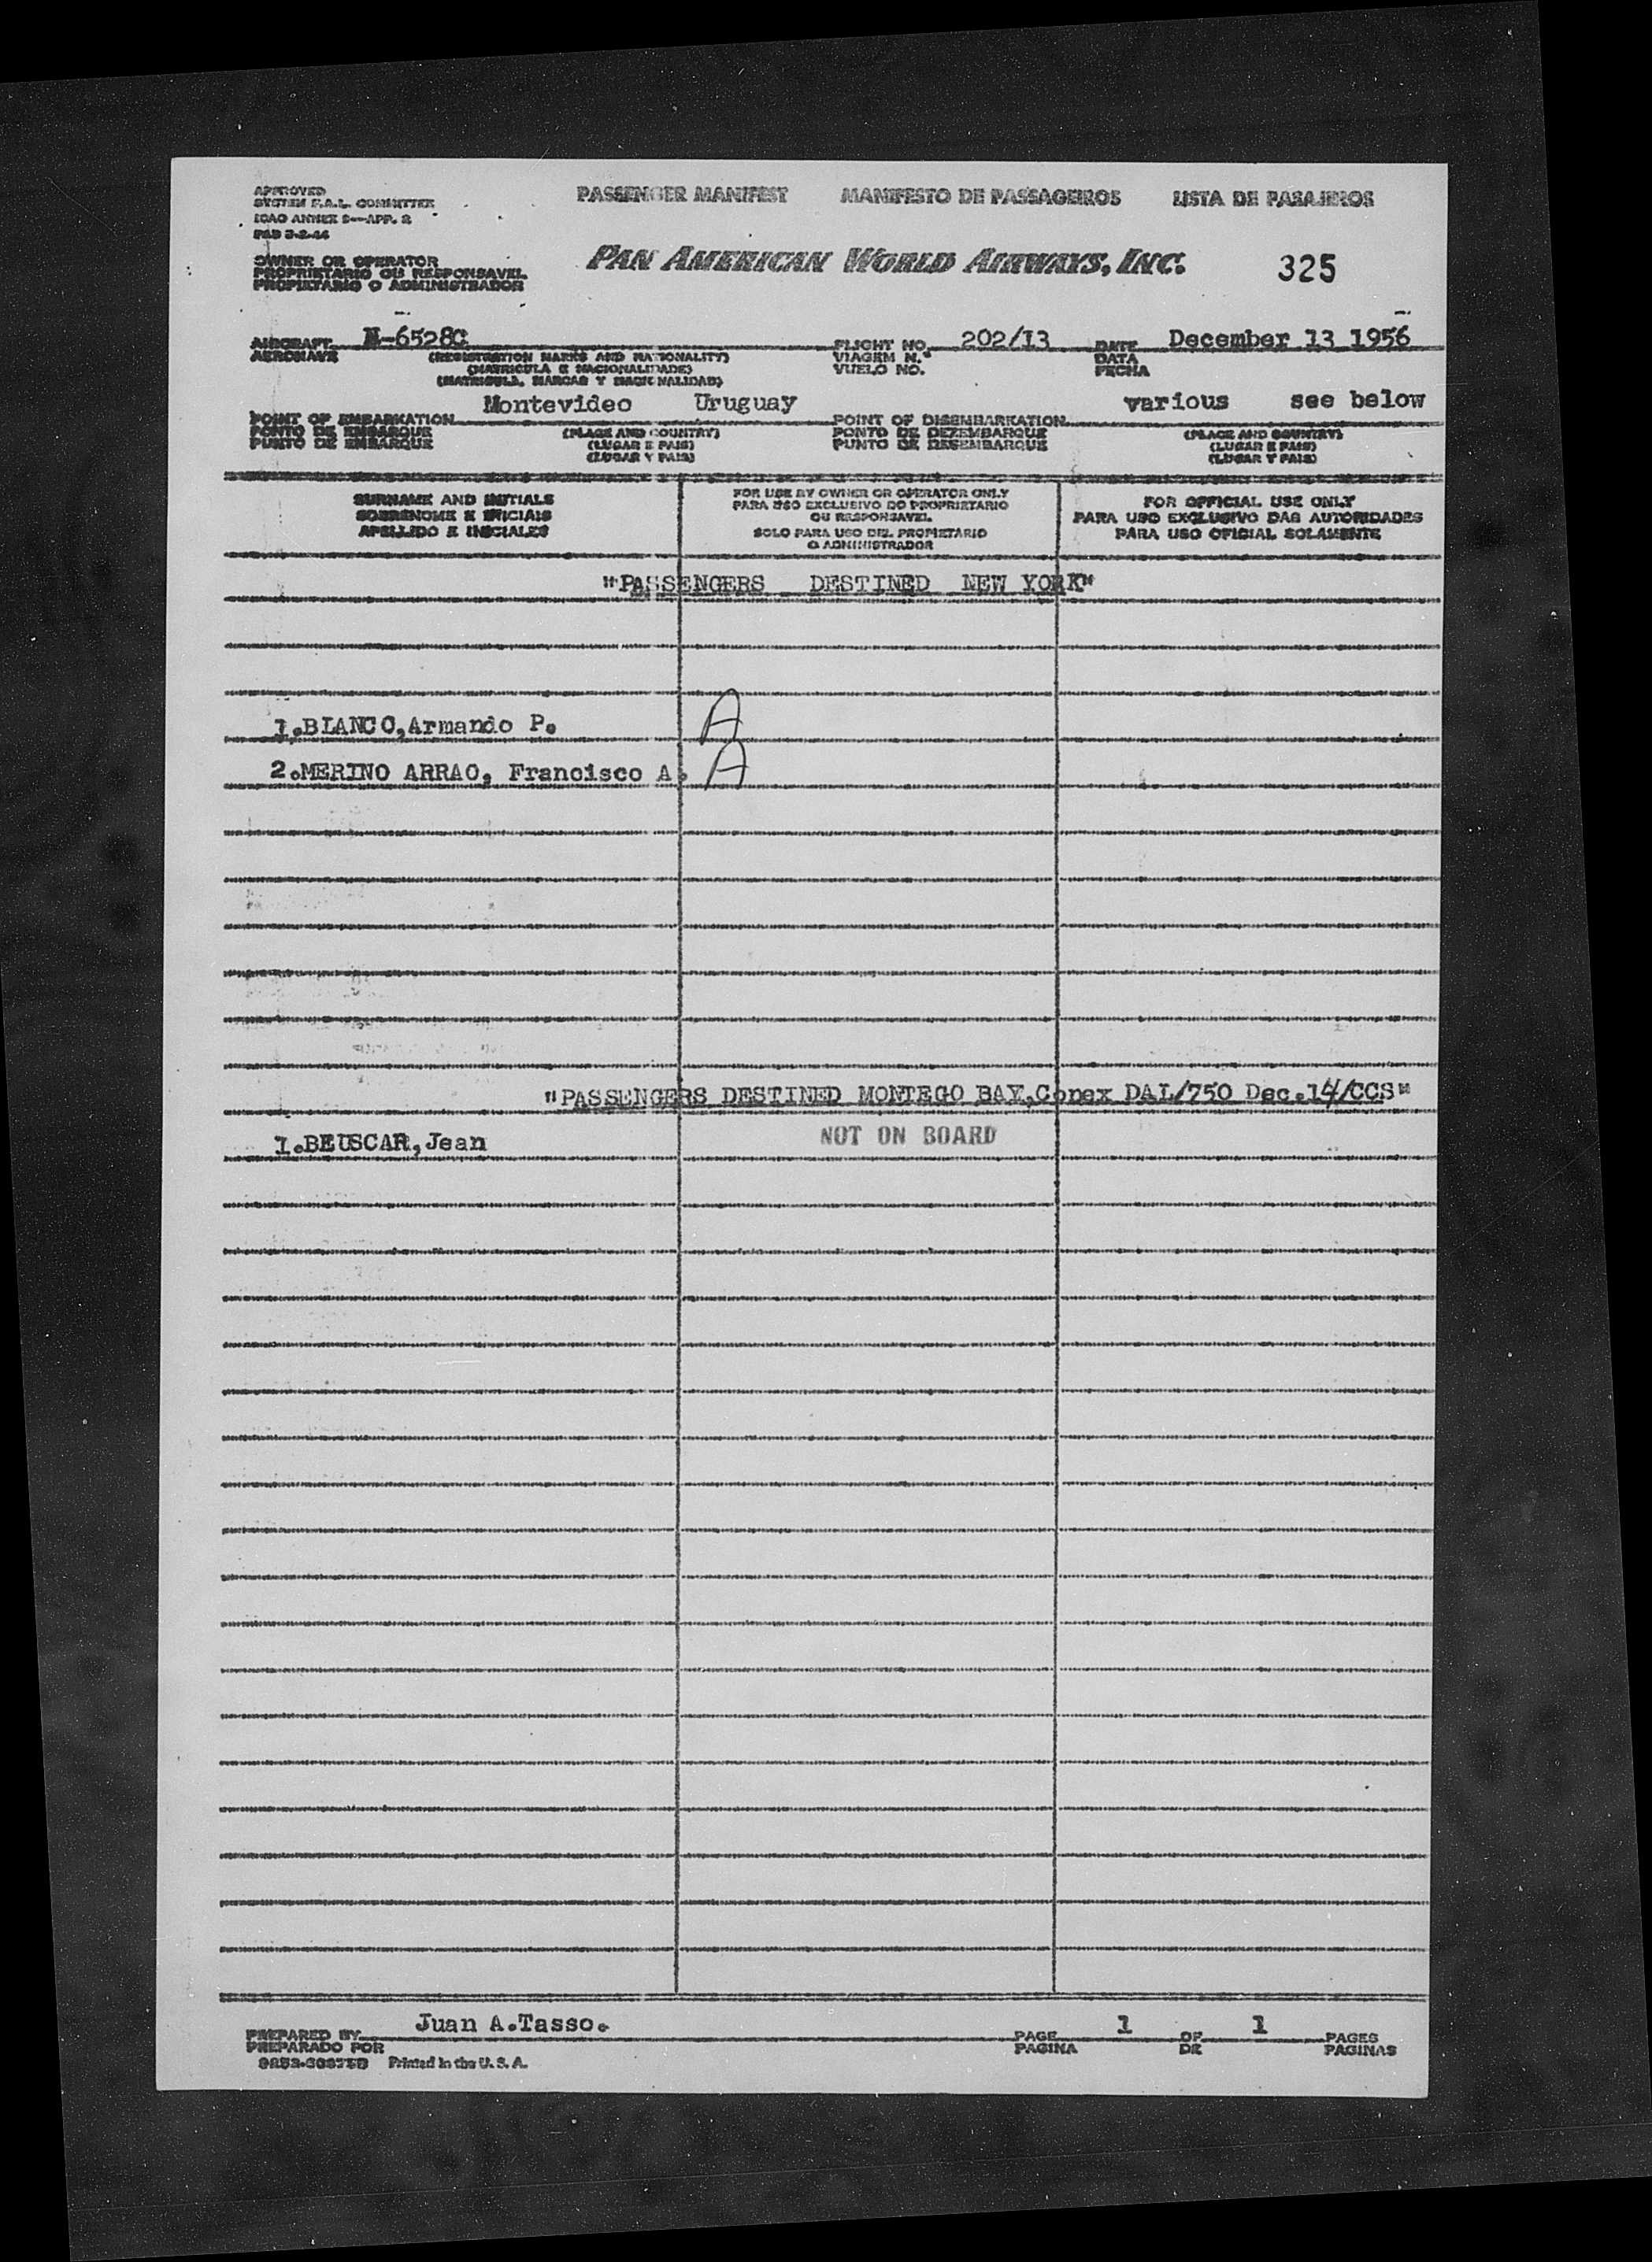 APPROVED
SYSTEM F.A.L. COMMITTEE
ICAO ANNEX 9—APP. 2
PAD 3-2-44
PASSENGER MANIFEST MANIFESTO DE PASSAGEIROS LISTA DE PASAJEROS
OWNER OR OPERATOR
PROPRIETARIO OU RESPONSAVEL
PROPIETARIO O ADMINISTRADOR
PAN AMERICAN WORLD AIRWAYS, INC.
325
AIRCRAFT N-6528C FLIGHT NO. 202/I3 DATE December 13 1956
AERONAVE (REGISTRATION MARKS AND NATIONALITY) VIAGEM N.º DATA
(MATRICULA E NACIONALIDADE) VUELO NO. FECHA
(MATRICULA, MARCAS Y NACIONALIDAD)
POINT OF EMBARKATION Montevideo Uruguay POINT OF DISEMBARKATION various see below
PONTO DE EMBARQUE (PLACE AND COUNTRY) PONTO DE DEZEMBARQUE (PLACE AND COUNTRY)
PUNTO DE EMBARQUE (LUGAR E PAIS) PUNTO DE DESEMBARQUE (LUGAR E PAIS)
(LUGAR Y PAIS) (LUGAR Y PAIS)
SURNAME AND INITIALS
SOBRENOME E INICIAIS
APELLIDO E INICIALES
FOR USE BY OWNER OR OPERATOR ONLY
PARA USO EXCLUSIVO DO PROPRIETARIO
OU RESPONSAVEL
SOLO PARA USO DEL PROPIETARIO
O ADMINISTRADOR
FOR OFFICIAL USE ONLY
PARA USO EXCLUSIVO DAS AUTORIDADES
PARA USO OFICIAL SOLAMENTE
"PASSENGERS DESTINED NEW YORK"
1.BIANCO,Armando P. A
2.MERINO ARRAO, Francisco A. A
"PASSENGERS DESTINED MONTEGO BAY,Conex DAL/750 Dec.14/CCS"
1.BEUSCAR,Jean NOT ON BOARD
PREPARED BY Juan A.Tasso. PAGE 1 OF 1 PAGES
PREPARADO POR PAGINA DE PAGINAS
Printed in the U. S. A.